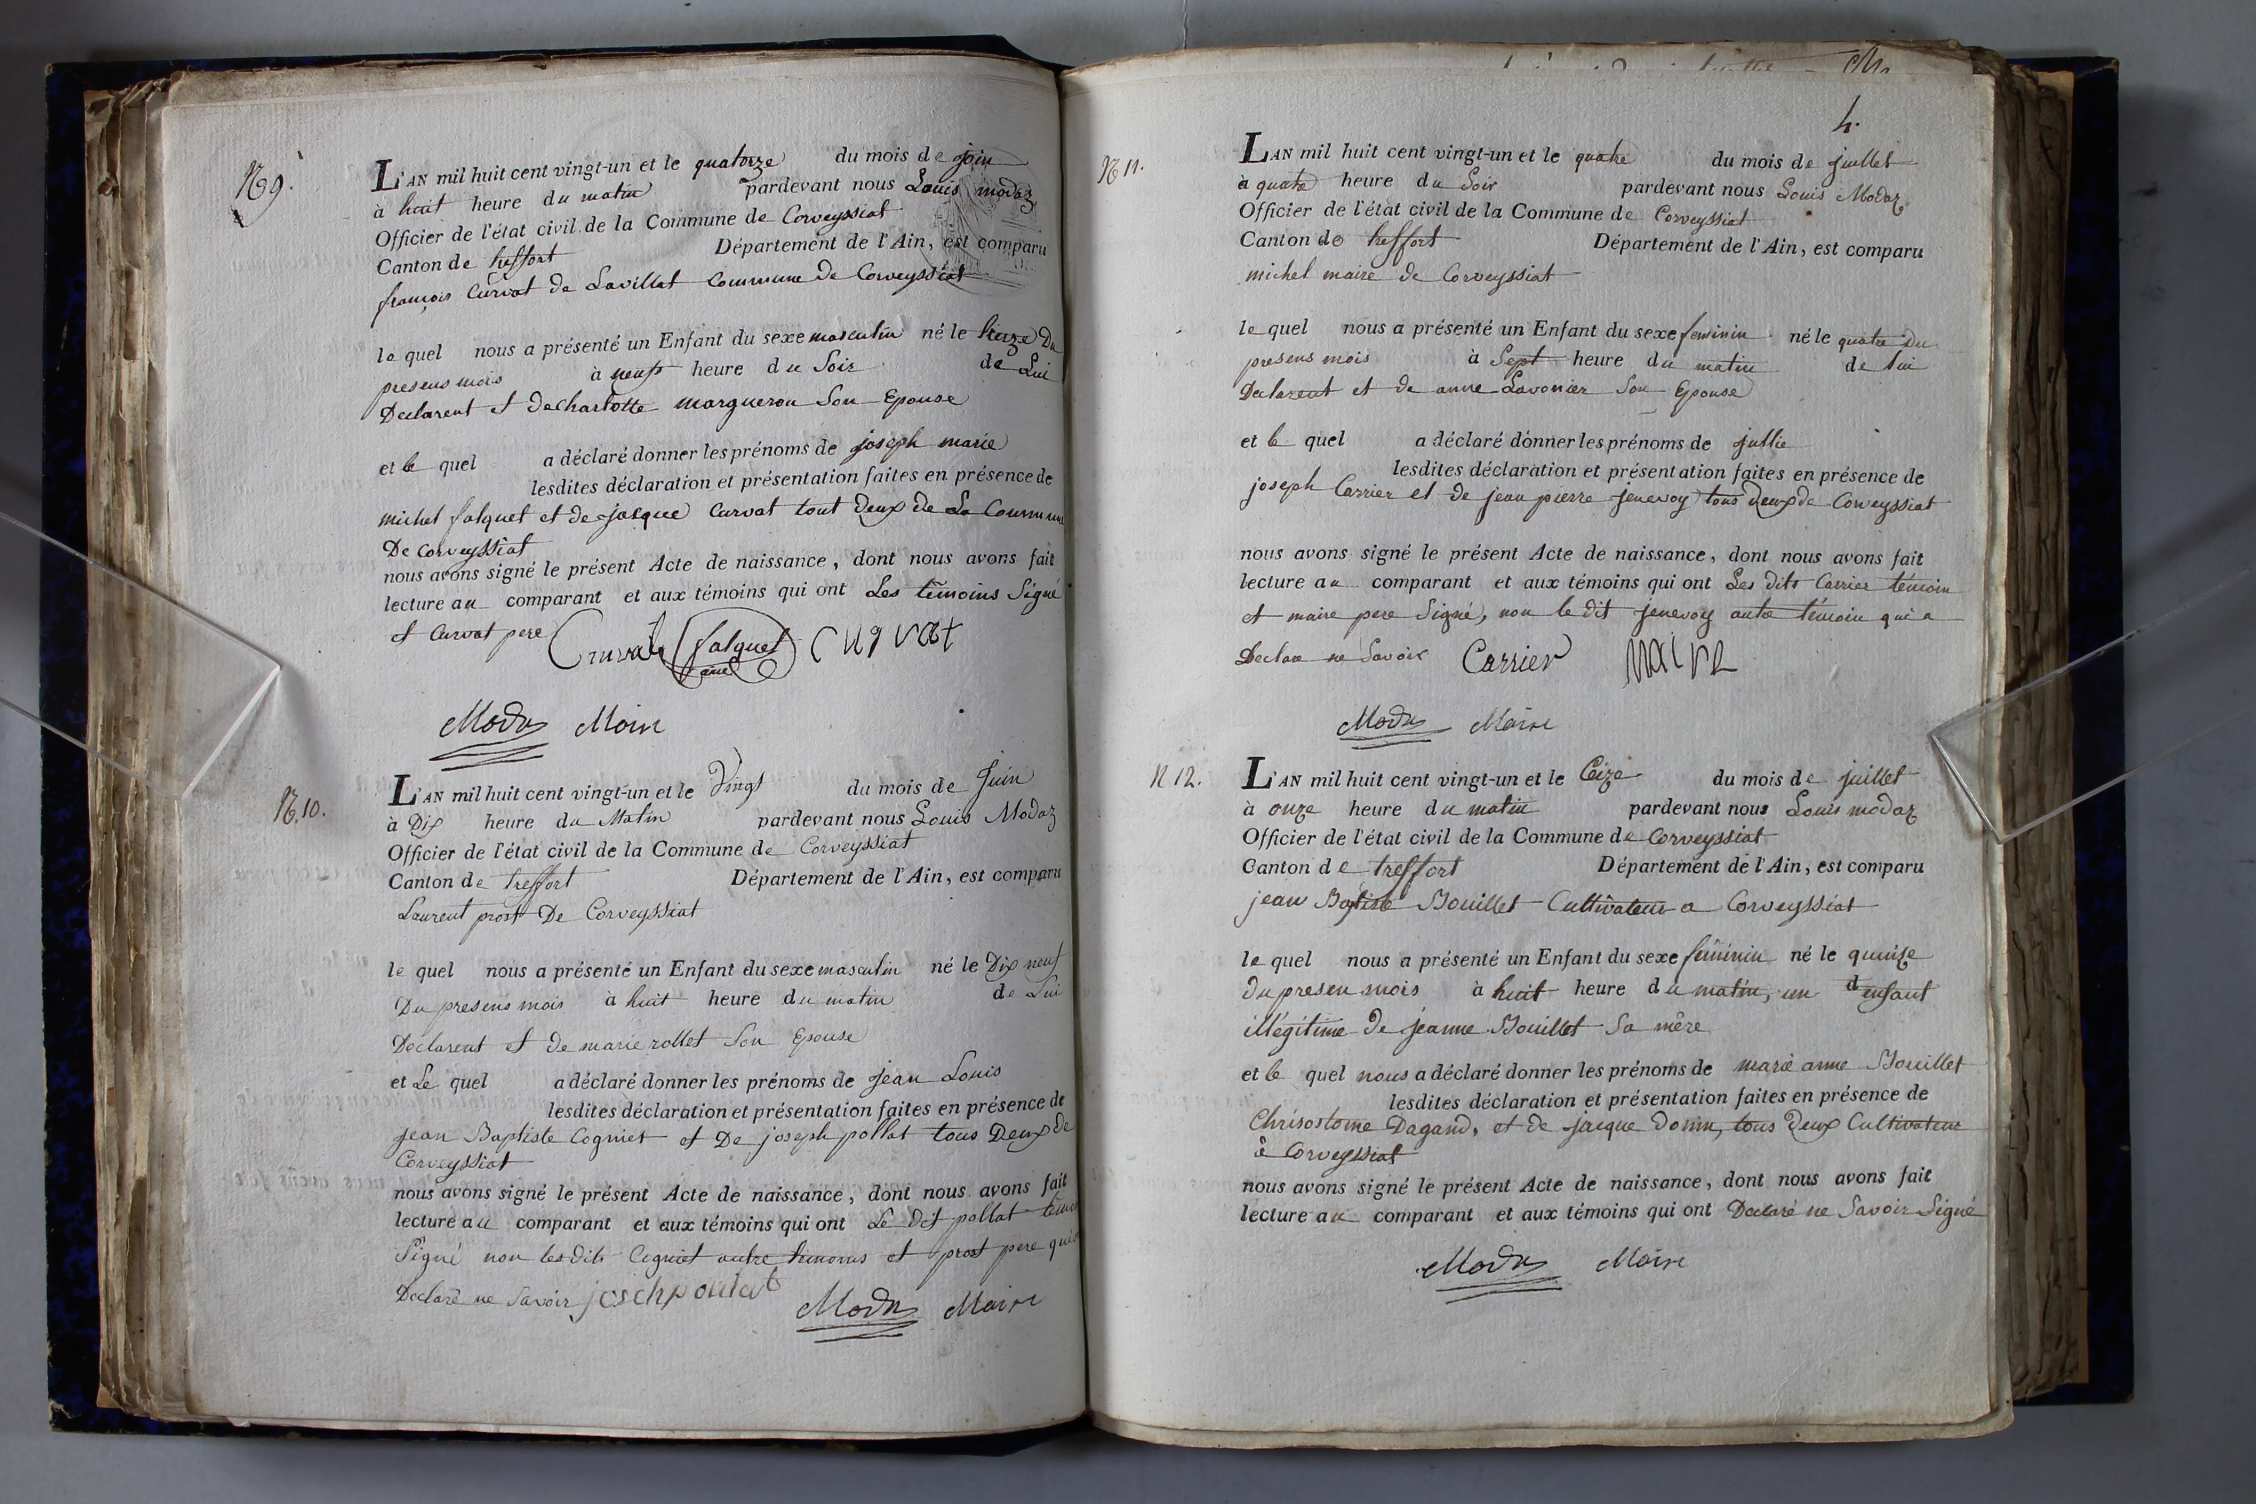 N° 9.
L'AN mil huit cent vingt-un et le quatorze du mois de join
à huit heure du matin pardevant nous Louis modaz
Officier de l'état civil de la Commune de Corveyssiat
Canton de treffort Département de l'Ain, est comparu
françois Curvat de Lavillat commune de Corveyssiat
le quel nous a présenté un Enfant du sexe masculin né le treize Du
presens mois à neuf heure du Soir de Lui
Declarent et de Charlotte margueron Son Epouse
et le quel a déclaré donner les prénoms de joseph marie
lesdites déclaration et présentation faites en présence de
michel falquet et de jacque Curvat tout Deux de La Commune
De Corveyssiat
nous avons signé le présent Acte de naissance, dont nous avons fait
lecture au comparant et aux témoins qui ont Les temoins Signé
et Curvat pere falquet
Modas Maire
N°. 10.
L'AN mil huit cent vingt-un et le Vingt du mois de Juin
à Dix heure du Matin pardevant nous Louis Modaz
Officier de l'état civil de la Commune de Corveyssiat
Canton de treffort Département de l'Ain, est comparu
Laurent prost De Corveyssiat
le quel nous a présenté un Enfant du sexe masculin né le Dix neuf
Du presens mois à huit heure du matin de Lui
Declarent et de marie rollet Son Epouse
et Le quel a déclaré donner les prénoms de Jean Louis
lesdites déclaration et présentation faites en présence de
Jean Baptiste Cogniet et De joseph pollat tous Deux de
Corveyssiat
nous avons signé le présent Acte de naissance, dont nous avons fait
lecture au comparant et aux témoins qui ont Le Dit pollat
Signé non les dits Cogniet autre temoins et prost pere qui
Declaré ne Savoir
Modas Maire
4.
N° 11.
L'AN mil huit cent vingt-un et le quatre du mois de juillet
à quatre heure du Soir pardevant nous Louis Modaz
Officier de l'état civil de la Commune de Corveyssiat
Canton de treffort Département de l'Ain, est comparu
michel maire de Corveyssiat
le quel nous a présenté un Enfant du sexe feminin né le quatre du
presens mois à Sept heure du matin de lui
Declarent et de anne Lavonier Son Epouse
et le quel a déclaré donner les prénoms de jullie
lesdites déclaration et présentation faites en présence de
joseph Carrier et de jean pierre jenevoy tous deux de Corveyssiat
nous avons signé le présent Acte de naissance, dont nous avons fait
lecture au comparant et aux témoins qui ont Les dits Carrier témoin
et maire pere Signé, non le dit jenevoy autre témoin qui a
Declare ne Savoir Carrier maire
Modas Maire
N 12.
L'AN mil huit cent vingt-un et le Ceize du mois de juillet
à onze heure du matin pardevant nous Louis modaz
Officier de l'état civil de la Commune de Corveyssiat
Canton de treffort Département de l'Ain, est comparu
jean Baptiste Bouillet Cultivateur a Corveyssiat
le quel nous a présenté un Enfant du sexe féminin né le quinze
du presen mois à huit heure du matin, un d'enfant
illégitime de jeanne Bouillet Sa mère
et le quel nous a déclaré donner les prénoms de marie anne Bouillet
lesdites déclaration et présentation faites en présence de
Chrisostome Dagand, et de jacque donin, tous deux Cultivateur
à Corveyssiat
nous avons signé le présent Acte de naissance, dont nous avons fait
lecture au comparant et aux témoins qui ont Declaré ne Savoir Signé
Modas Maire